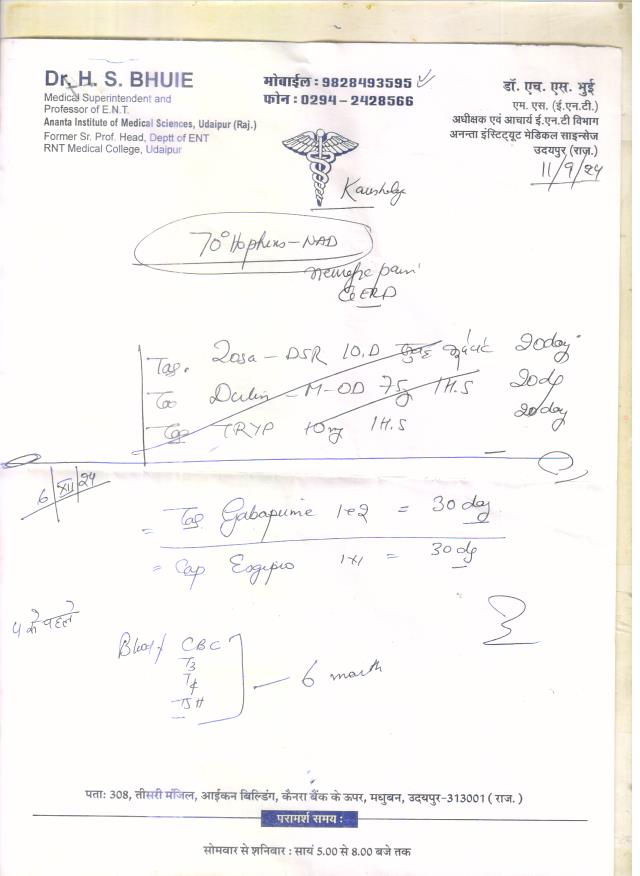 Dr. H. S. BHUIE
Medical Superintendent and
Professor of E.N.T.
Ananta Institute of Medical Sciences, Udaipur (Raj.)
Former Sr. Prof. Head, Deptt of ENT
RNT Medical College, Udaipur
मोबाईल : 9828493595
फोन : 0294 – 2428566
डॉ. एच. एस. भुई
एम. एस. (ई.एन.टी.)
अधीक्षक एवं आचार्य ई.एन.टी विभाग
अनन्ता इंस्टिट्यूट मेडिकल साइन्सेज
उदयपुर (राज.)
11/9/24
70° Hopkins – NAD
pain
GERD
Tab. – DSR 1 O.D 20 day
– M-OD 75 1 H.S
TRYP 10 mg 1 H.S 20 day
6/XII/24
= Tab = 30 day
= Cap 1x1 = 30
के पहले
Blood CBC
T3
T4
TSH
6 month
पता: 308, तीसरी मंजिल, आईकन बिल्डिंग, कैनरा बैंक के ऊपर, मधुबन, उदयपुर-313001 ( राज. )
परामर्श समय :
सोमवार से शनिवार : सायं 5.00 से 8.00 बजे तक